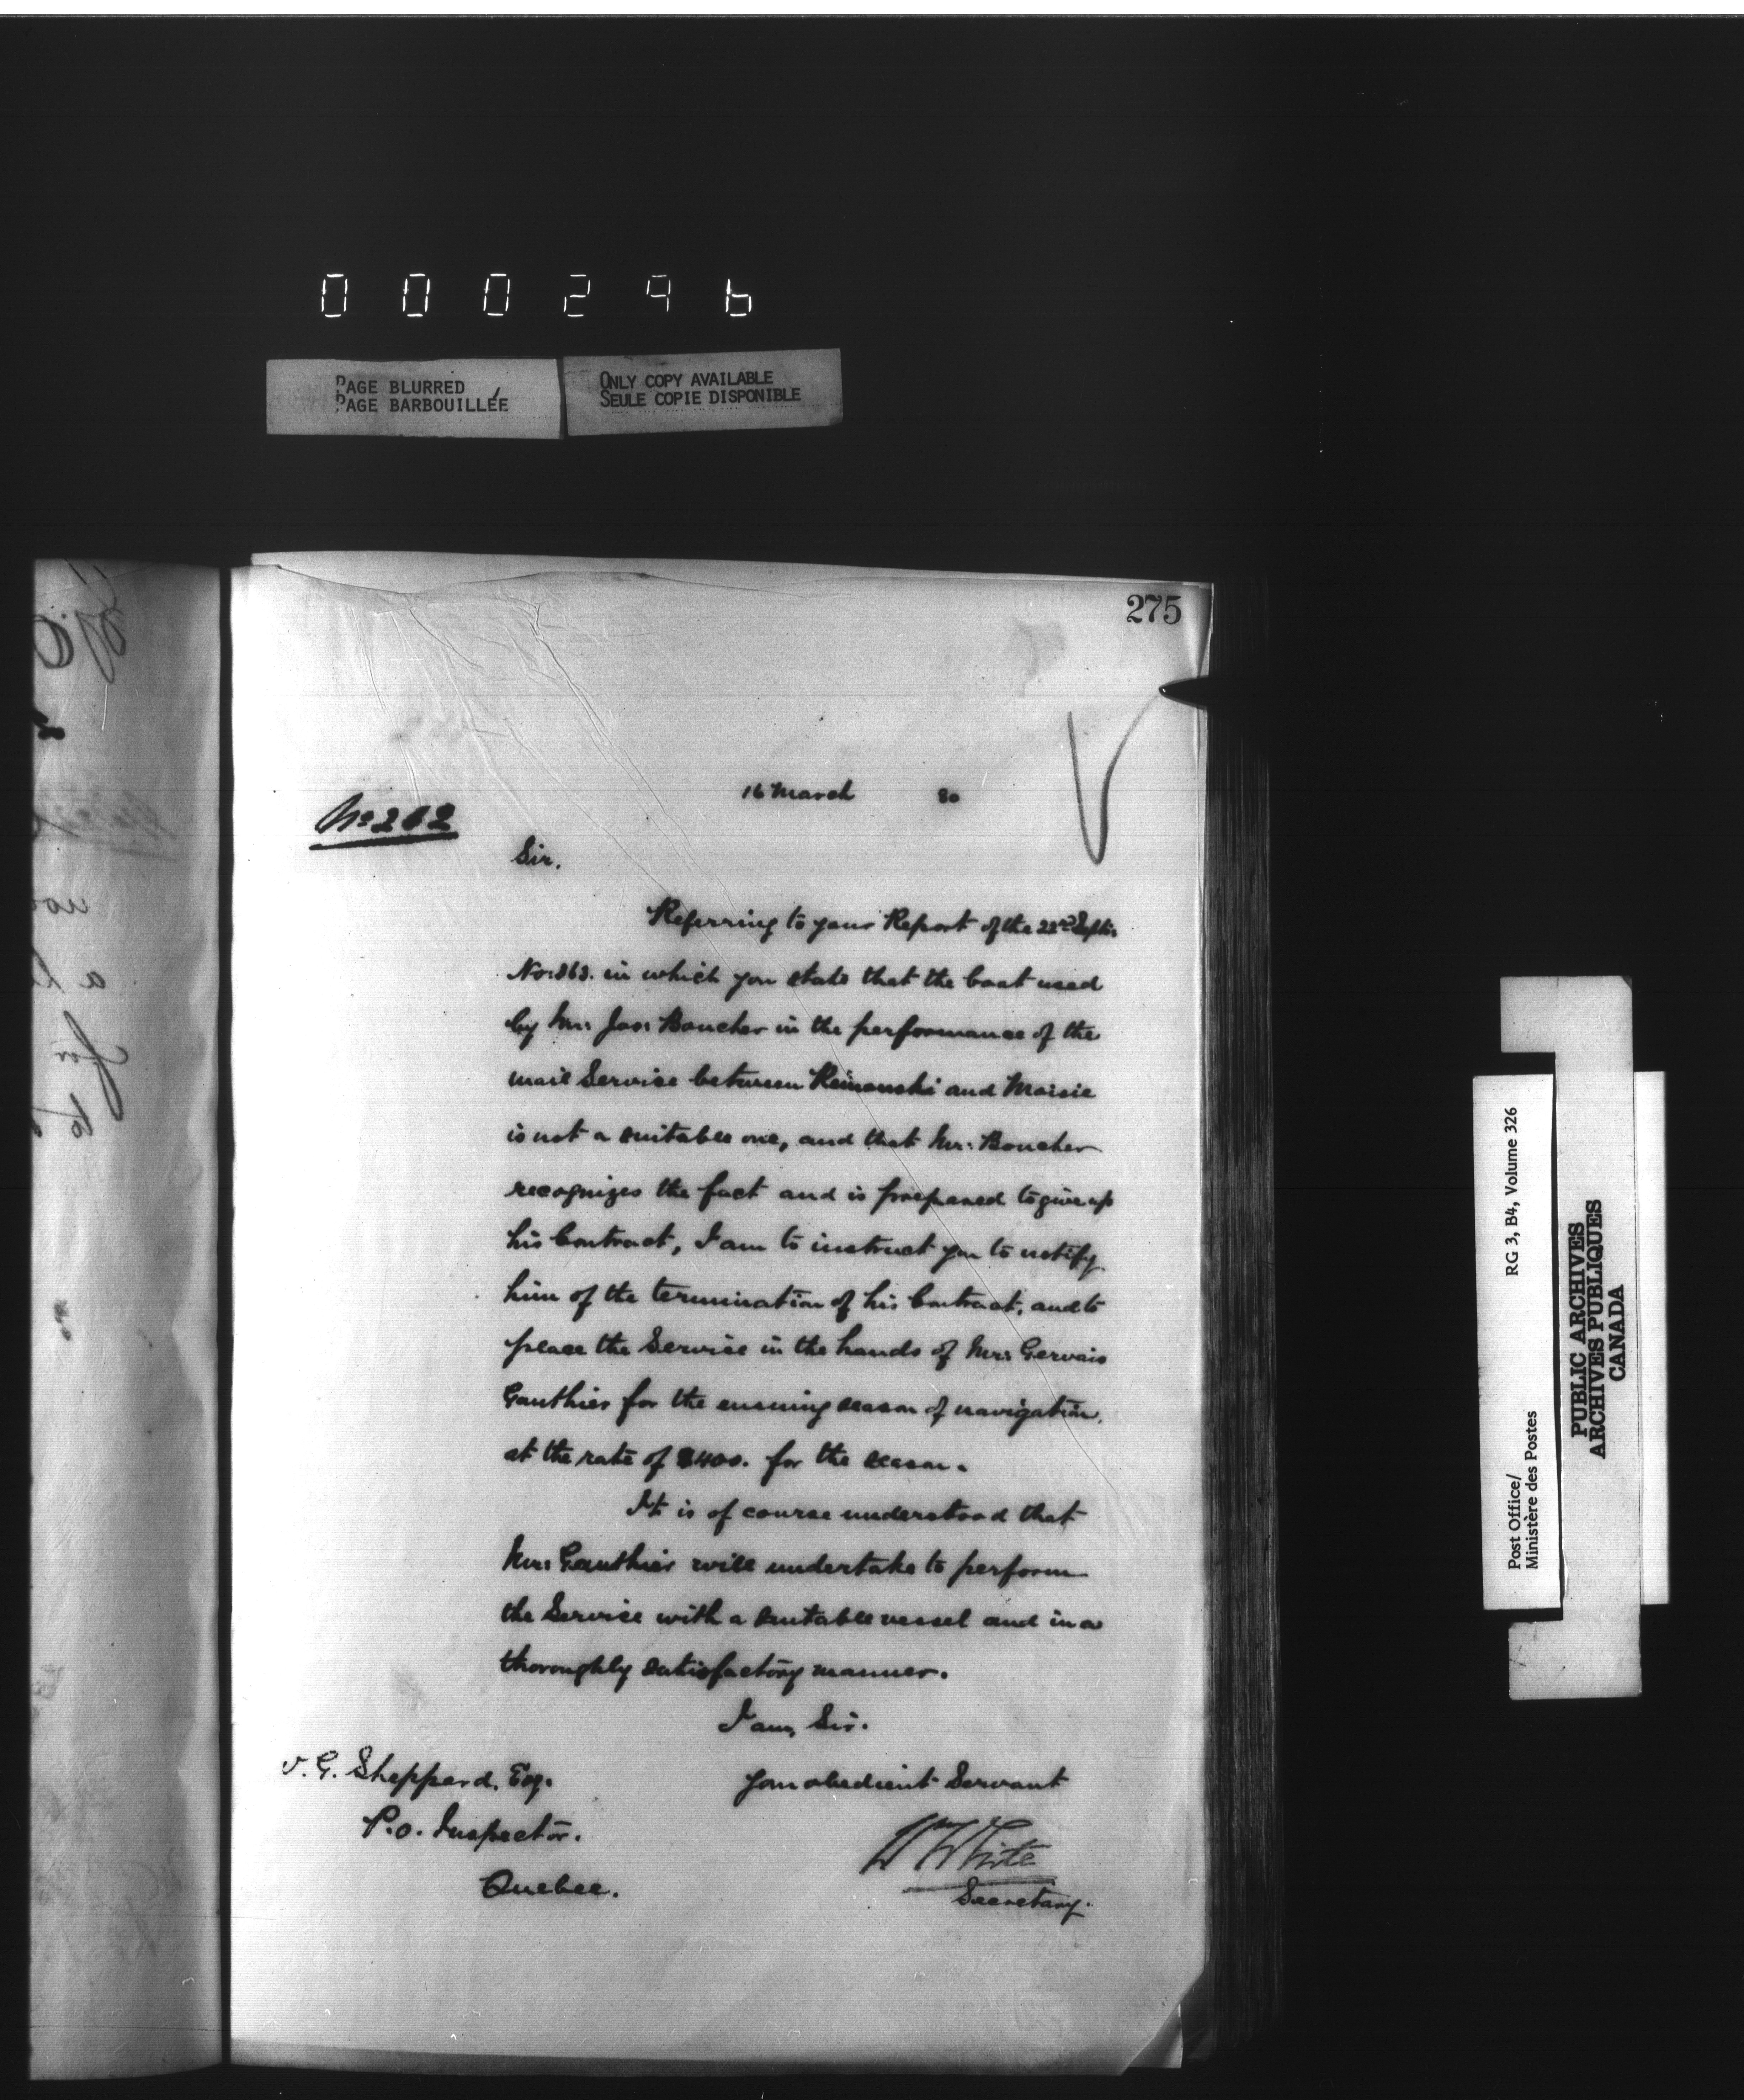 000296
PAGE BLURRED
PAGE BARBOUILLÉE
ONLY COPY AVAILABLE
SEULE COPIE DISPONIBLE
275
16 March 80
No 262
Sir.
Referring to your Report of the 22nd Septr.
No: 863. in which you state that the boat used
by Mr: Jos: Boucher in the performance of the
mail Service between Rimouski and Moisie
is not a suitable one, and that Mr: Boucher
recognizes the fact and is prepared to give up
his Contract, I am to instruct you to notify
him of the termination of his Contract, and to
place the Service in the hands of Mr: Gervais
Gauthier for the ensuing season of navigation,
at the rate of $400. for the season.
It is of course understood that
Mr: Gauthier will undertake to perform
the Service with a suitable vessel and in a
thoroughly satisfactory manner.
I am, Sir.
Your obedient Servant
W White
Secretary.
G. Sheppard, Esq.
P.O. Inspector.
Quebec.
RG 3, B4, Volume 326
Post Office/
Ministère des Postes
PUBLIC ARCHIVES
ARCHIVES PUBLIQUES
CANADA